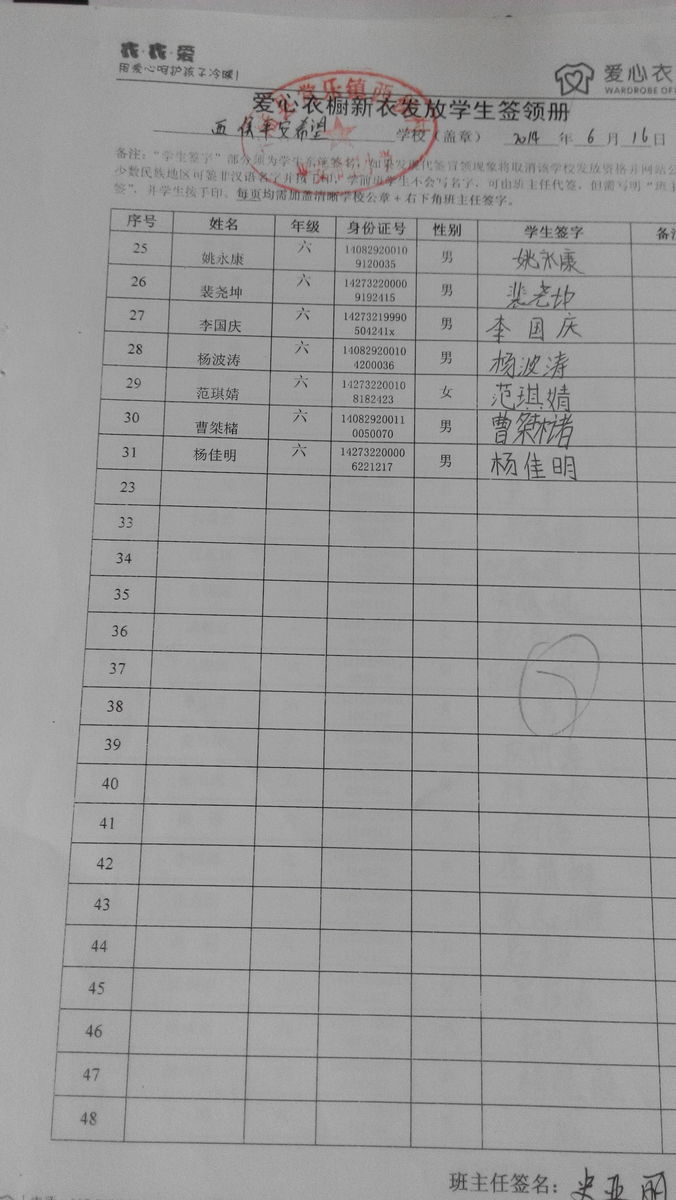 衣·衣·爱
用爱心呵护孩子冷暖!
爱心衣
WARDROBE OF
爱心衣橱新衣发放学生签领册
西侯平安希望 学校（盖章） 2014 年 6 月 16 日
备注："学生签字"部分须为学生亲笔签名，如果发现代签冒领现象将取消该学校发放资格并网站公
少数民族地区可签非汉语名字并按手印，学前班学生不会写名字，可由班主任代签，但需写明"班主
签"，并学生按手印。每页均需加盖清晰学校公章+右下角班主任签字。
序号 姓名 年级 身份证号 性别 学生签字 备注
25 姚永康 六 140829200109120035 男 姚永康
26 裴尧坤 六 142732200009192415 男 裴尧坤
27 李国庆 六 14273219990504241x 男 李国庆
28 杨波涛 六 140829201044200036 男 杨波涛
29 范琪婧 六 142732200108182423 女 范琪婧
30 曹椉楮 六 140829200110050070 男 曹椉楮
31 杨佳明 六 142732200006221217 男 杨佳明
23
33
34
35
36
37
38
39
40
41
42
43
44
45
46
47
48
班主任签名：史亚丽